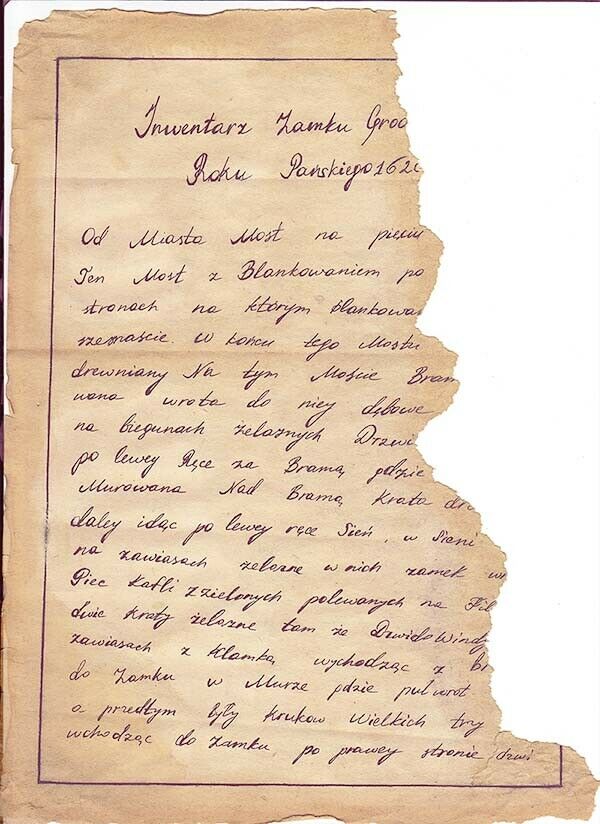 Inwentarz Zamku Grod
Roku Pańskiego 162
Od Miasta Most na pięciu
Ten Most z Blankowaniem po
stronach na którym blankowa
szesnaście. W końcu tego Mostu
drewniany Na tym Moście Bram
wana wrota do niey dębowe
na biegunach żelaznych Drzwi
po lewey Ręce za Bramą gdzie
Murowana Nad Bramą Krata dr
daley idąc po lewey ręce Sień, w Sieni
na zawiasach żelazne w nich zamek w
Piec Kafli z zielonych polewanych na Fil
dwie Kraty żelazne tam że Drzwi do Windy
zawiasach z Klamką wychodząc z br
do Zamku w Murze gdzie pulwrot
a przedtym były Krukow Wielkich try
wchodząc do Zamku po prawey stronie drzwi